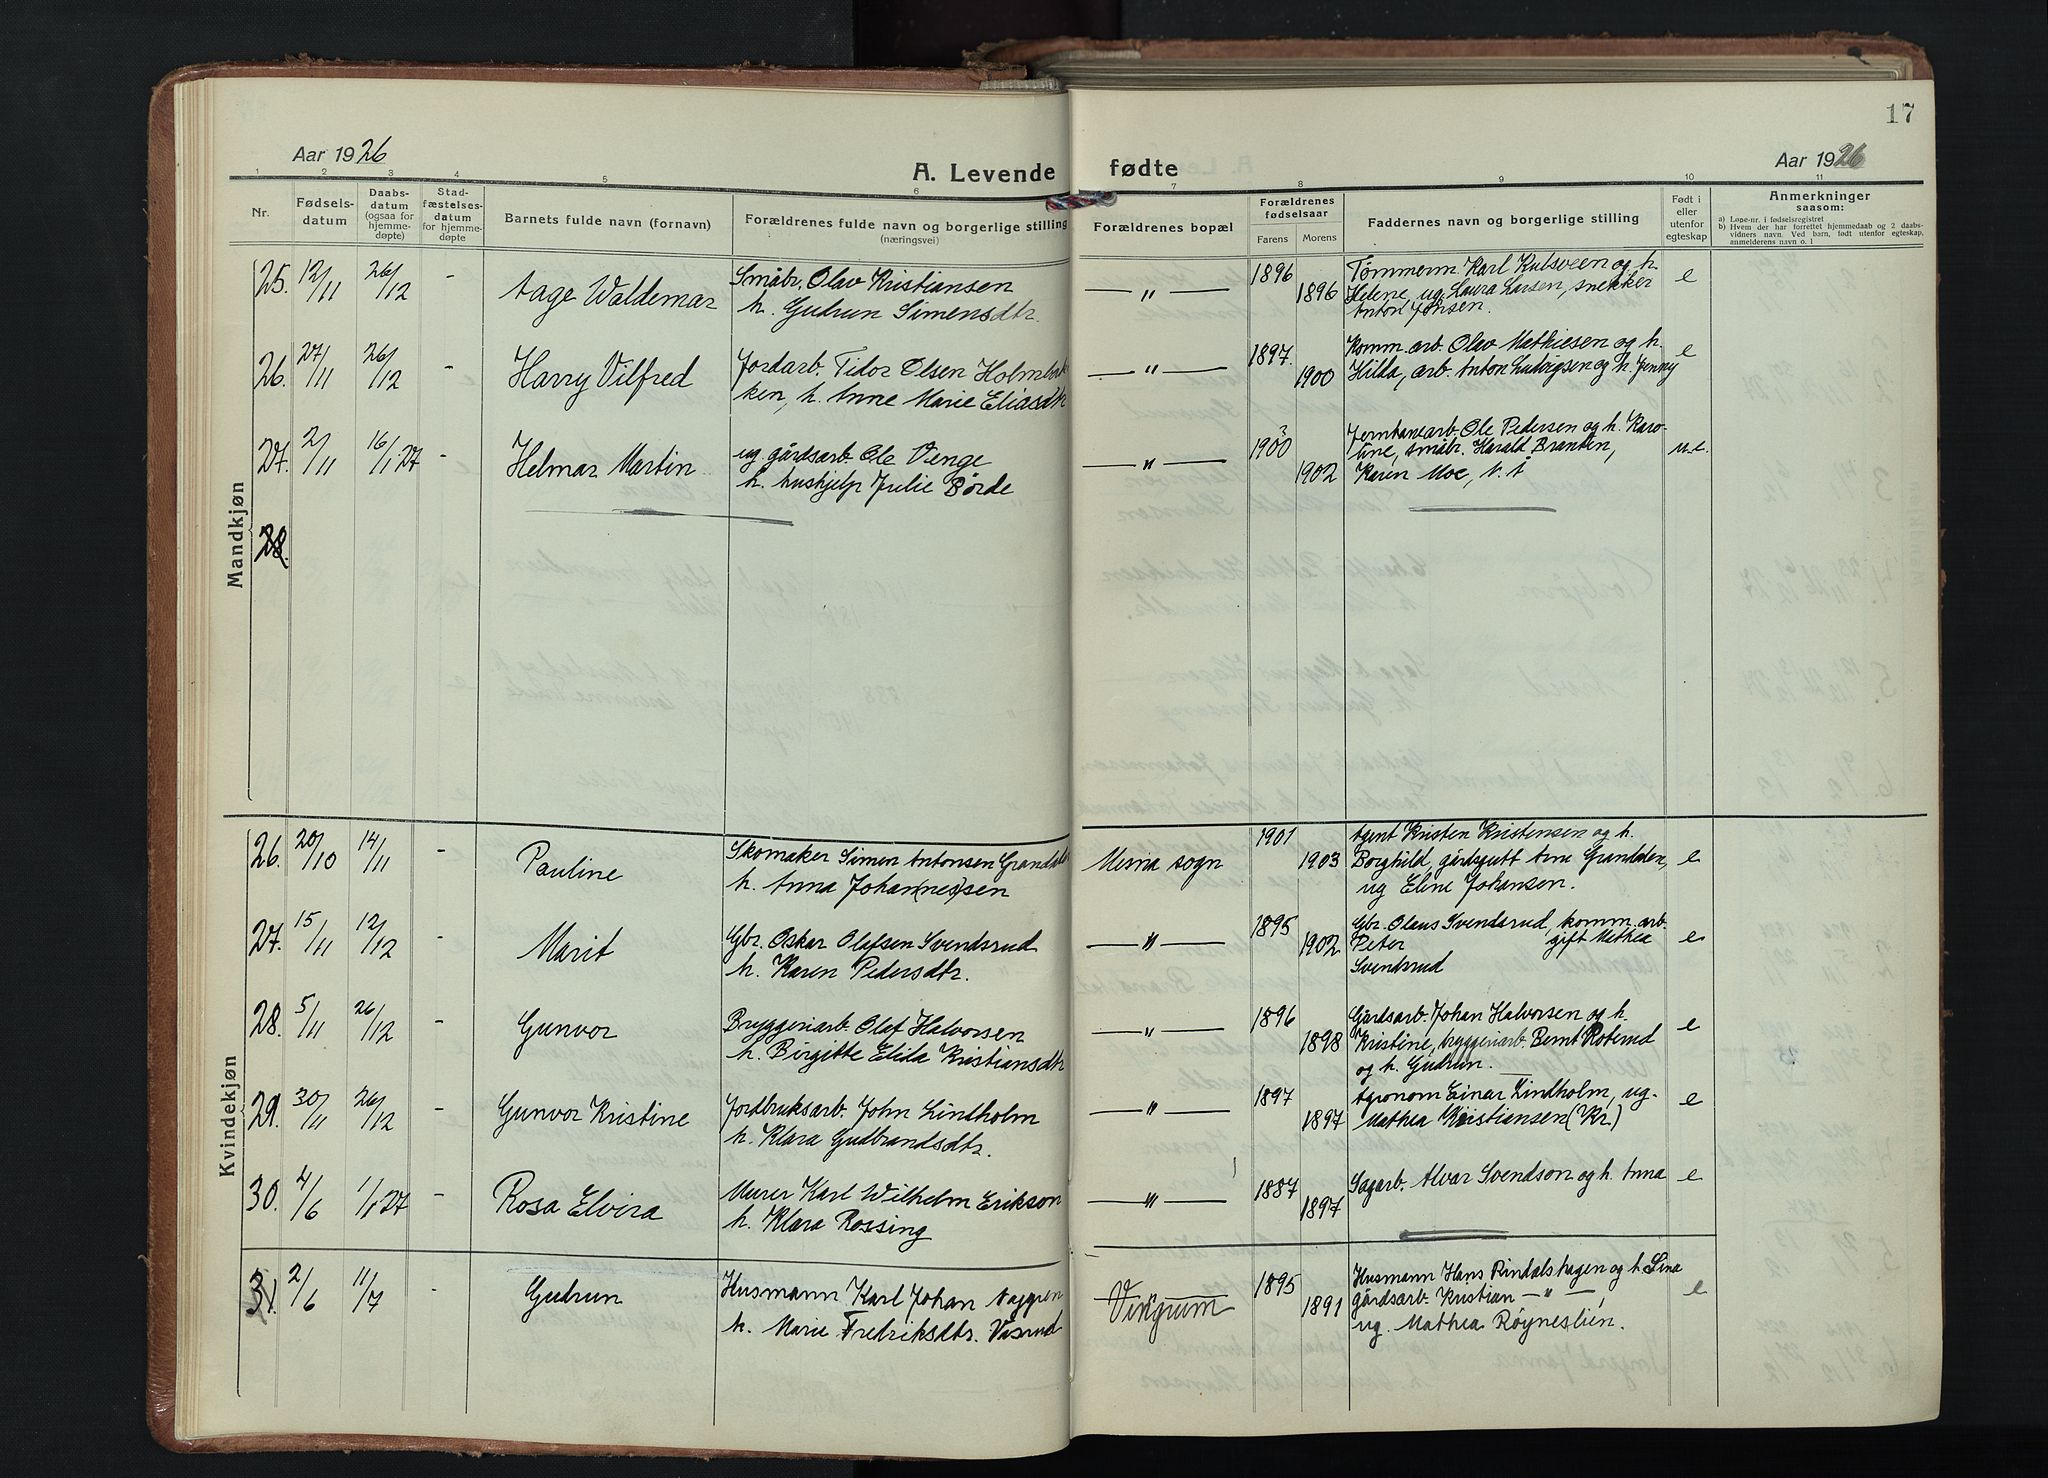 17
Aar 1926
A. Levende fødte
Aar 1926
1 2 3 4 5 6 7 8 9 10 11
Nr.
Fødselsdatum
Daabsdatum (ogsaa for hjemmedøpte)
Stadfæstelsesdatum for hjemmedøpte
Barnets fulde navn (fornavn)
Forældrenes fulde navn og borgerlige stilling (næringsvei)
Forældrenes bopæl
Forældrenes fødselsaar
Farens Morens
Faddernes navn og borgerlige stilling
Født i eller utenfor egteskap
Anmerkninger saasom:
a) Løpe-nr. i fødselsregistret
b) Hvem der har forrettet hjemmedaab og 2 daabsvidners navn. Ved barn, født utenfor egteskap, anmelderens navn o. l
Mandkjøn
25. 12/11 26/12 - Aage Waldemar Småbr. Olav Kristiansen — " — 1896 Tømmerm. Karl Kulsveen og h. e
h. Gudrun Simensdtr. 1896 Helene, ug. Laura Larsen, snekker
Anton Jonsen.
26. 27/11 26/12 - Harry Vilfred Jordarb. Tidor Olsen — " — 1897. Komm. arb. Olav Mathiesen og h. e
ken, h. Anne Marie Eliasdtr 1900 Hilda, arb. Anton Ludvigsen og h. Jenny
27. 2/11 16/1 27 - Helmar Martin ug. gårdsarb. Ole Venge — " — 1900 ? Jernbanearb. Ole Pedersen og h. Karo-
h. hushjelp Julie Børde 1902 line, småbr. Harald Branten, u.e.
Karen Moe, N. Å
28.
Kvindekjøn
26. 20/10 14/11 - Pauline Skomaker Simen Antonsen Mesna sogn 1901 Agent Kristen Kristensen og h.
h. Anna Johan(nes)sen 1903 Borghild, gårdsgutt Arne Grandalen, e
ug Eline Johansen.
27. 15/11 12/12 - Marit Gbr. Oskar Olafsen Svendsrud — " — 1895 Gbr. Olaus Svendsrud, komm. arb.
h. Karen Pedersdtr. 1902 Peter gift Mathea e
Svendsrud
28. 5/11 26/12 - Gunvor Bryggeriarb. Olaf Halvorsen — " — 1896 Gårdsarb. Johan Halvorsen og h.
h. Birgitte Elida Kristiansdtr 1898 Kristine, bryggeriarb. Bernt Roterud e
og h. Gudrun.
29. 30/11 26/12 - Gunvor Kristine Jordbruksarb. John Lindholm — " — 1897 Agronom Einar Lindholm, ug. e
h. Klara Gudbrandsdtr. 1897 Mathea Kristiansen (Kr)
30. 4/6 1/1 27 - Rosa Elvira Murer Karl Wilhelm Erikson — " — 1887 Sagarb. Alvar Svendson og h. Anna e
h. Klara Rossing 1897
31. 2/6 11/7 - Gudrun Husmann Karl Johan Vingrum 1895 Husmann Hans Rindalshagen og h. Lina
h. Marie Fredriksdtr. 1891 gårdsarb. Kristian — " — e
ug. Mathea Røyneslien.